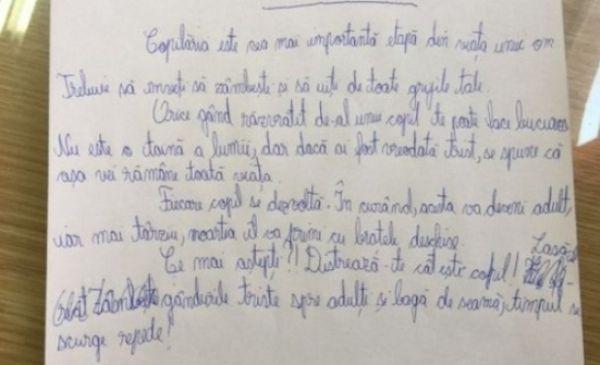 Copilăria este cea mai importantă etapă din viața unui om
Trebuie să înveți să zâmbești și să uiți de toate grijile tale.
Orice gând răzvrătit de-al unui copil te poate face bucuros
Nu este o taină a lumii, dar dacă ai fost vreodată trist, se spune că
așa vei rămâne toată viața.
Fiecare copil se dezvoltă. În curând, acesta va deveni adult,
iar mai târziu, moartea îl va primi cu brațele deschise.
Ce mai aștepți?! Distrează-te cât ești copil! Lasă
gândurile triste spre adulți și bagă de seamă, timpul se
scurge repede!